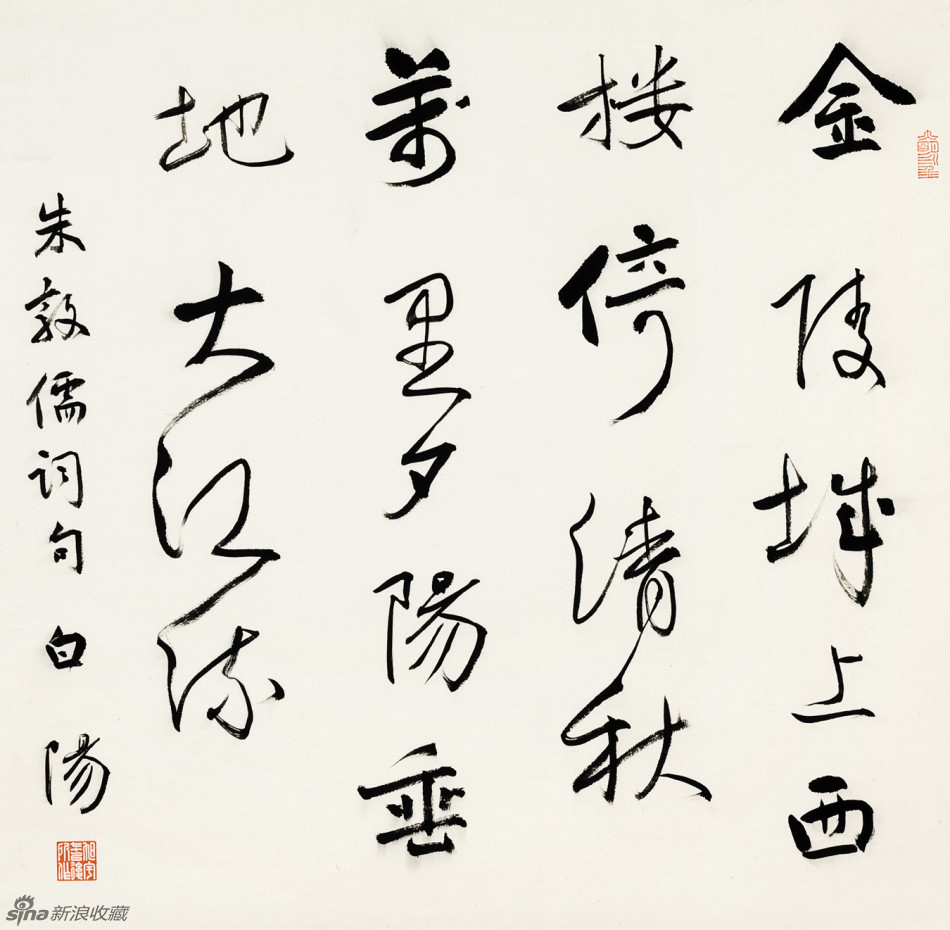 金陵城上西
楼倚清秋
萬里夕陽垂
地大江流
朱敦儒词句 白陽
sina新浪收藏